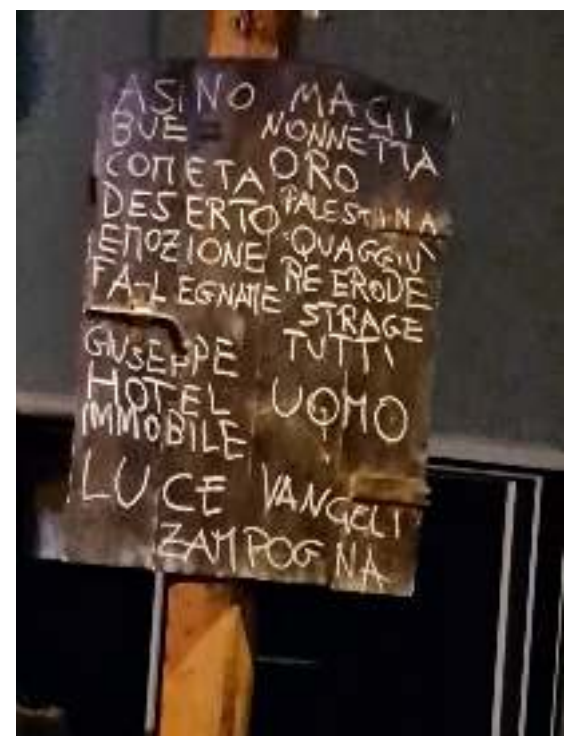 ASINO
BUE
COMETA
DESERTO
EMOZIONE
FA-LEGNAME
GIUSEPPE
HOTEL
IMMOBILE
LUCE
MAGI
NONNETTA
ORO
PALESTINA
QUAGGIÙ
RE ERODE
STRAGE
TUTTI
UOMO
VANGELI
ZAMPOGNA